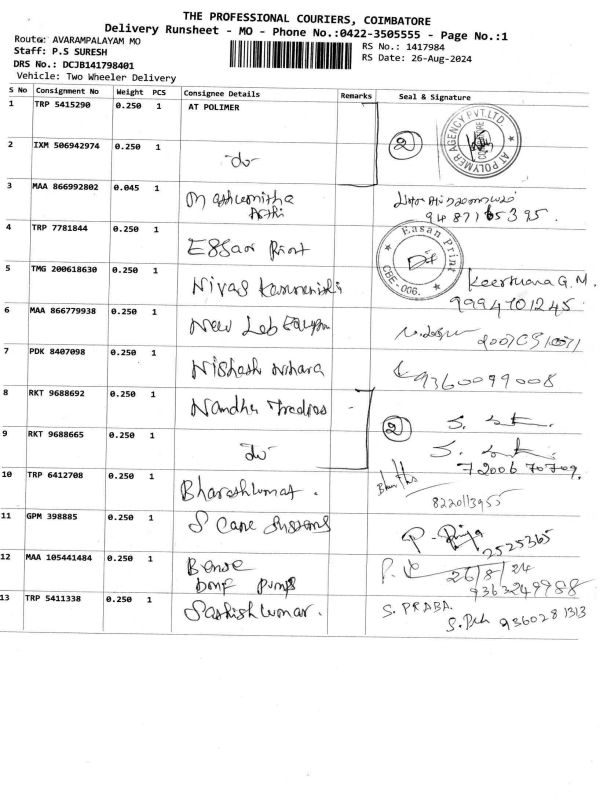 THE PROFESSIONAL COURIERS, COIMBATORE
Delivery Runsheet - MO - Phone No.:0422-3505555 - Page No.:1
Route: AVARAMPALAYAM MO
RS No.: 1417984
Staff: P.S SURESH
RS Date: 26-Aug-2024
DRS No.: DCJB141798401
Vehicle: Two Wheeler Delivery
S No Consignment No Weight PCS Consignee Details Remarks Seal & Signature
1 TRP 5415290 0.250 1 AT POLIMER
AT POLYMER AGENCY PVT.LTD
COIMBATORE
2
2 IXM 506942974 0.250 1 -do-
3 MAA 866992802 0.045 1
9487165395.
4 TRP 7781844 0.250 1 Essar Print
Easan Print
CBE-006.
5 TMG 200618630 0.250 1 Nivas
Keerthana G.M.
9994701245
6 MAA 866779938 0.250 1 New Lab
7 PDK 8407098 0.250 1 Nishesh
9360099008
8 RKT 9688692 0.250 1 Nandhu Traders
2
9 RKT 9688665 0.250 1 -do-
7200670709.
10 TRP 6412708 0.250 1 Bharathkumar.
8220113955
11 GPM 398885 0.250 1 S Cape Systems
2525365
12 MAA 105441484 0.250 1
Pumps
26/8/24
9363249988
13 TRP 5411338 0.250 1 Sathishkumar.
S. PRABA.
9360281313